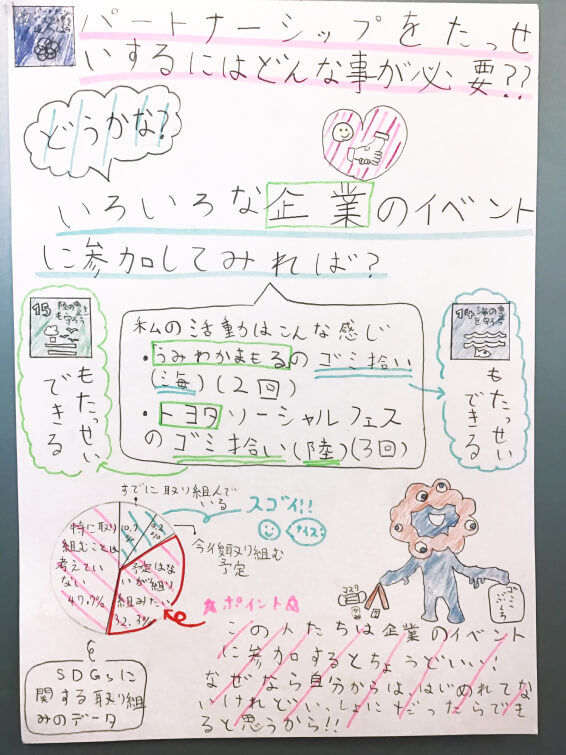 パートナーシップをたっせ
いするにはどんな事が必要??
どうかな?
いろいろな企業のイベント
に参加してみれば?
15
もたっせい
できる
私の活動はこんな感じ
・うみわかまもるのゴミ拾い
(海)(2回)
・トヨタソーシャルフェス
のゴミ拾い(陸)(3回)
14
もたっせい
できる
すでに取り組んで
いる
スゴイ!!
ナイス!
今後取り組む
予定
特に取り
組むことは
考えてい
ない
47.7%
予定はな
いが組り
組みたい
32.3%
ポイント
SDGsに
関する取り組
みのデータ
この人たちは企業のイベント
に参加するとちょうどいい!
なぜなら自分からは、はじめれてな
いけれどいっしょにだったらできる
と思うから!!